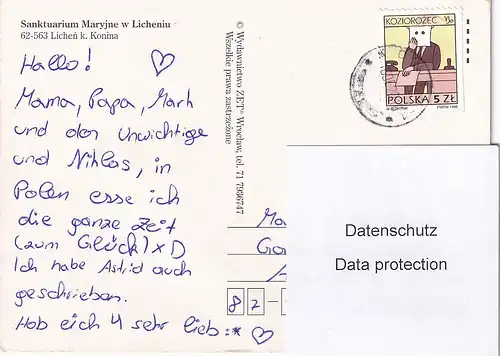 Sanktuarium Maryjne w Licheniu
62-563 Licheń k. Konina
Hallo! ♡
Mama, Papa, Mark
und den Unwichtige
und Niklas, in
Polen esse ich
die ganze Zeit
(zum Glück) xD
Ich habe Astrid auch
geschrieben.
Hab eich 4 sehr lieb :* ♡
© Wydawnictwo ZET® Wrocław, tel. 71 7896747
Wszelkie prawa zastrzeżone
KOZIOROŻEC
POLSKA 5 ZŁ
Ma
Go
82-
Datenschutz
Data protection